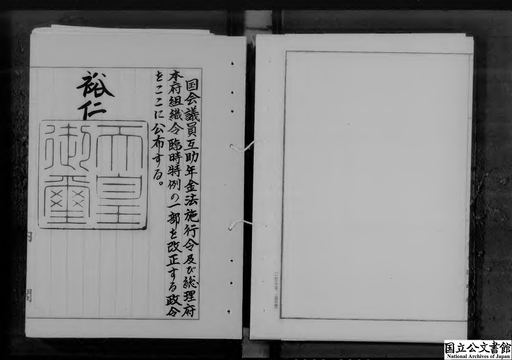 国会議員互助年金法施行令及び総理府
本府組織令臨時特例の一部を改正する政令
をここに公布する。
裕仁
天皇
御璽
国立公文書館
National Archives of Japan